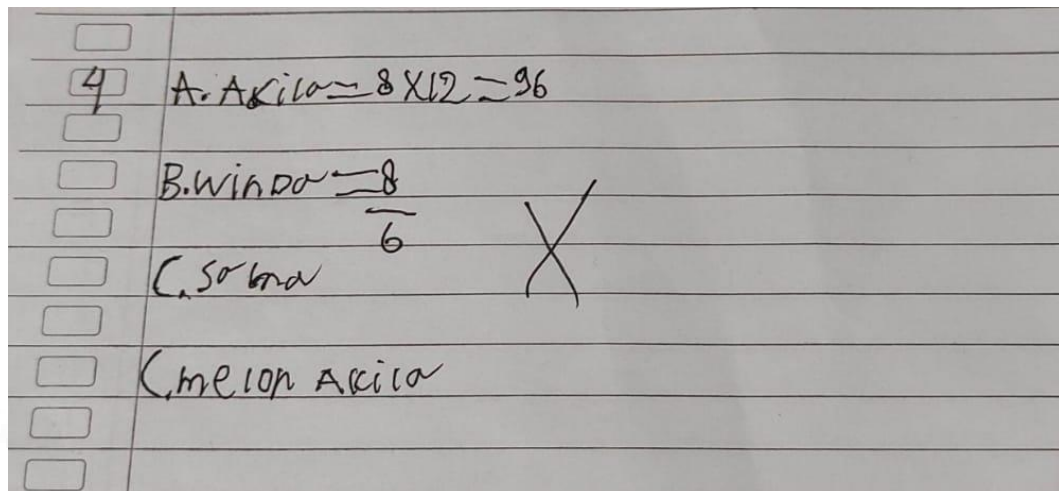 4 A. Akila = 8 X 12 = 96
B. Winda = 8
6
C. Sabna
C. melon Akila